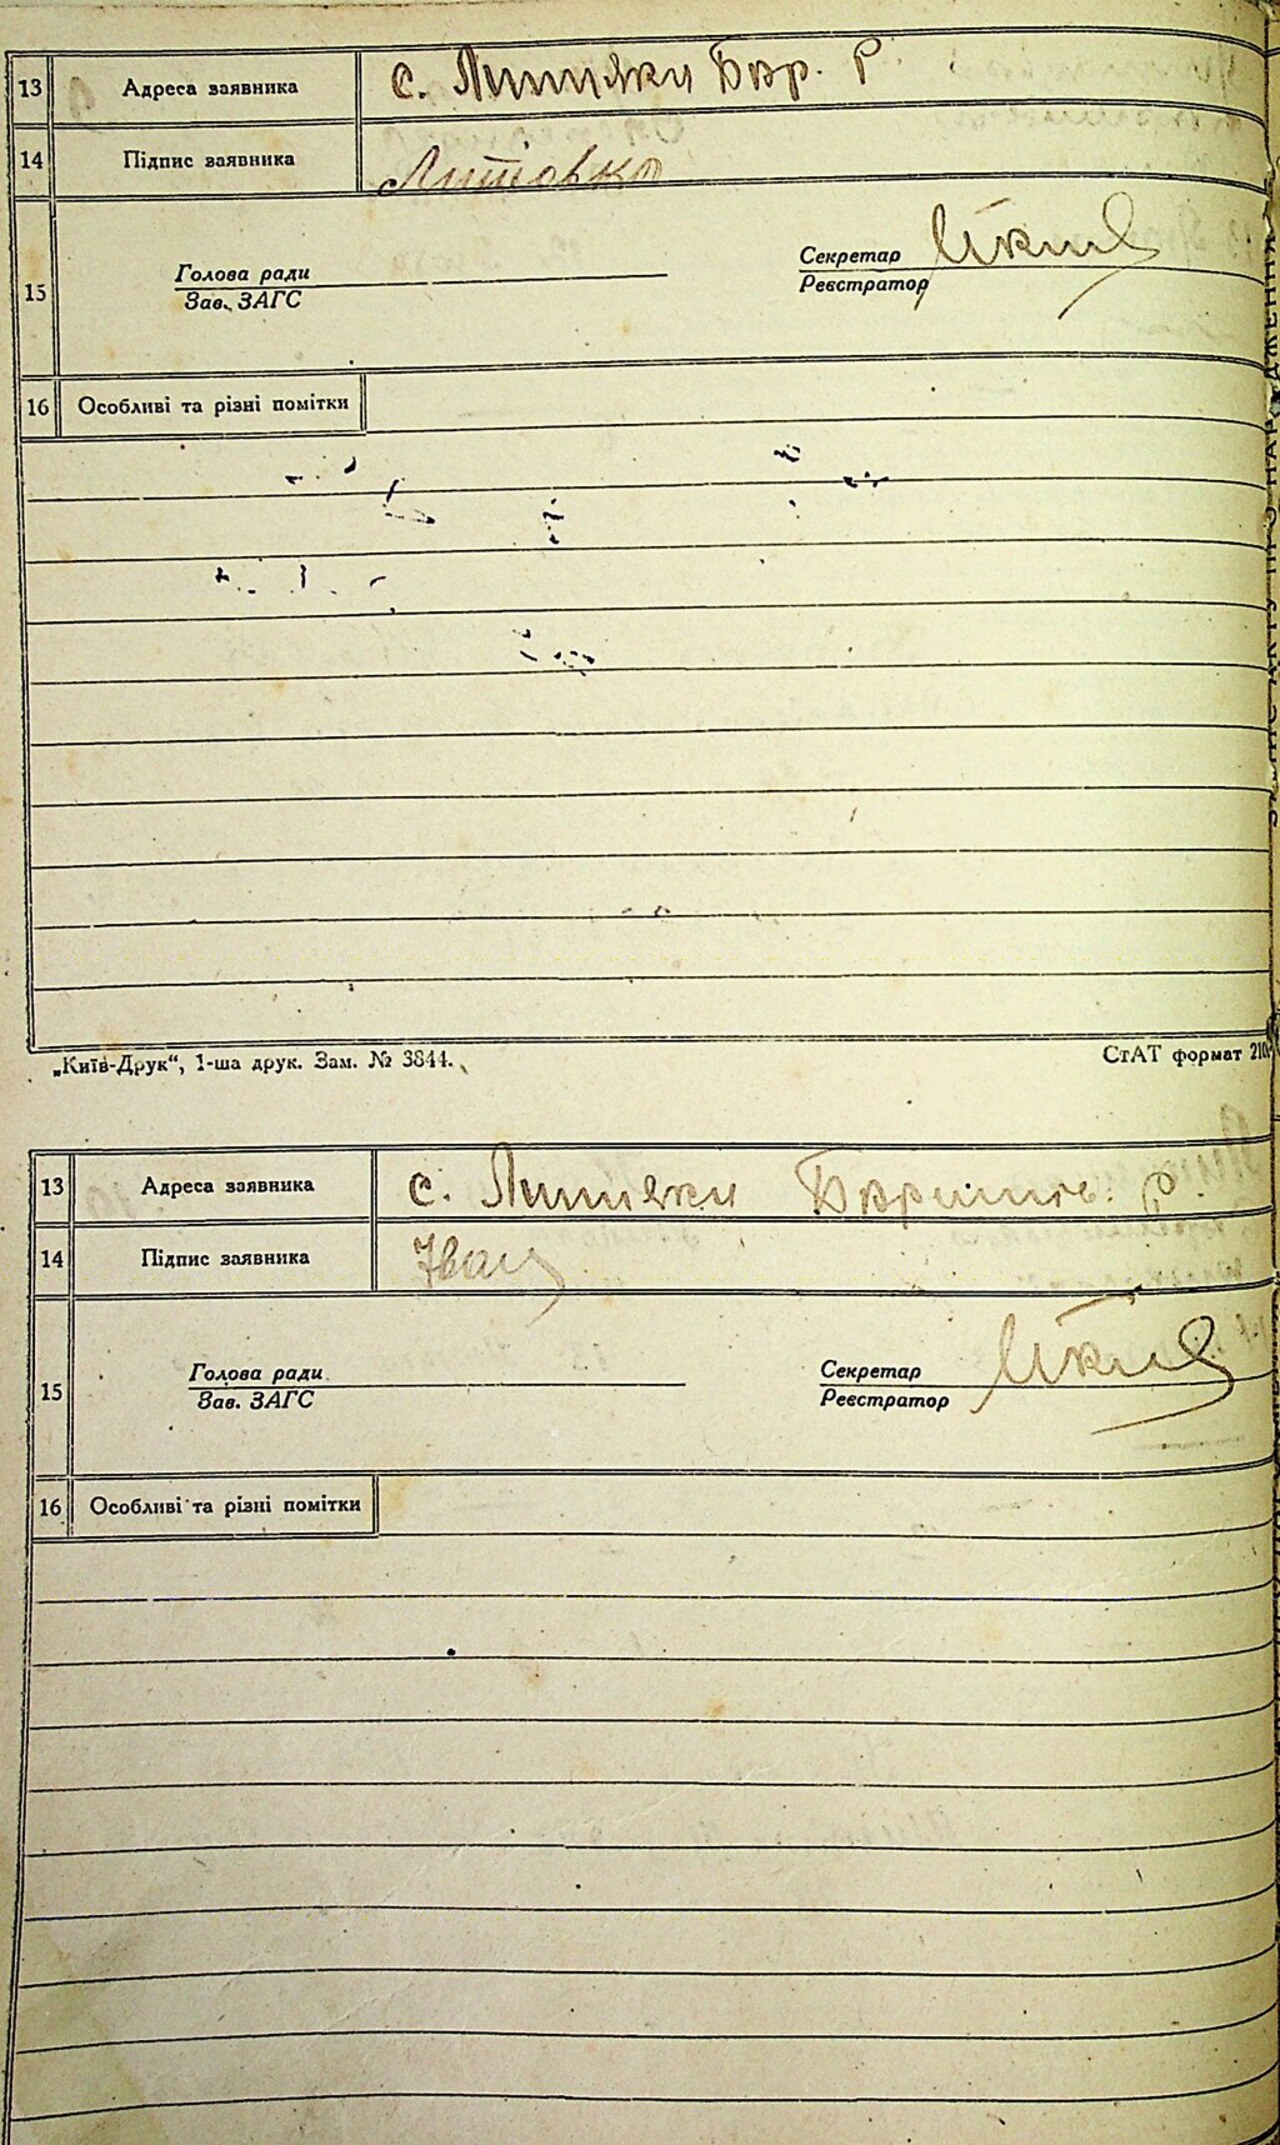 13 Адреса заявника с. Липняки Бар. Р.
14 Підпис заявника Литовко
15 Голова ради Секретар
Зав. ЗАГС Реєстратор
16 Особливі та різні помітки
„Київ-Друк“, 1-ша друк. Зам. № 3844. СтАТ формат 210
13 Адреса заявника с. Липняки Баришів. Р.
14 Підпис заявника Іван
15 Голова ради Секретар
Зав. ЗАГС Реєстратор
16 Особливі та різні помітки